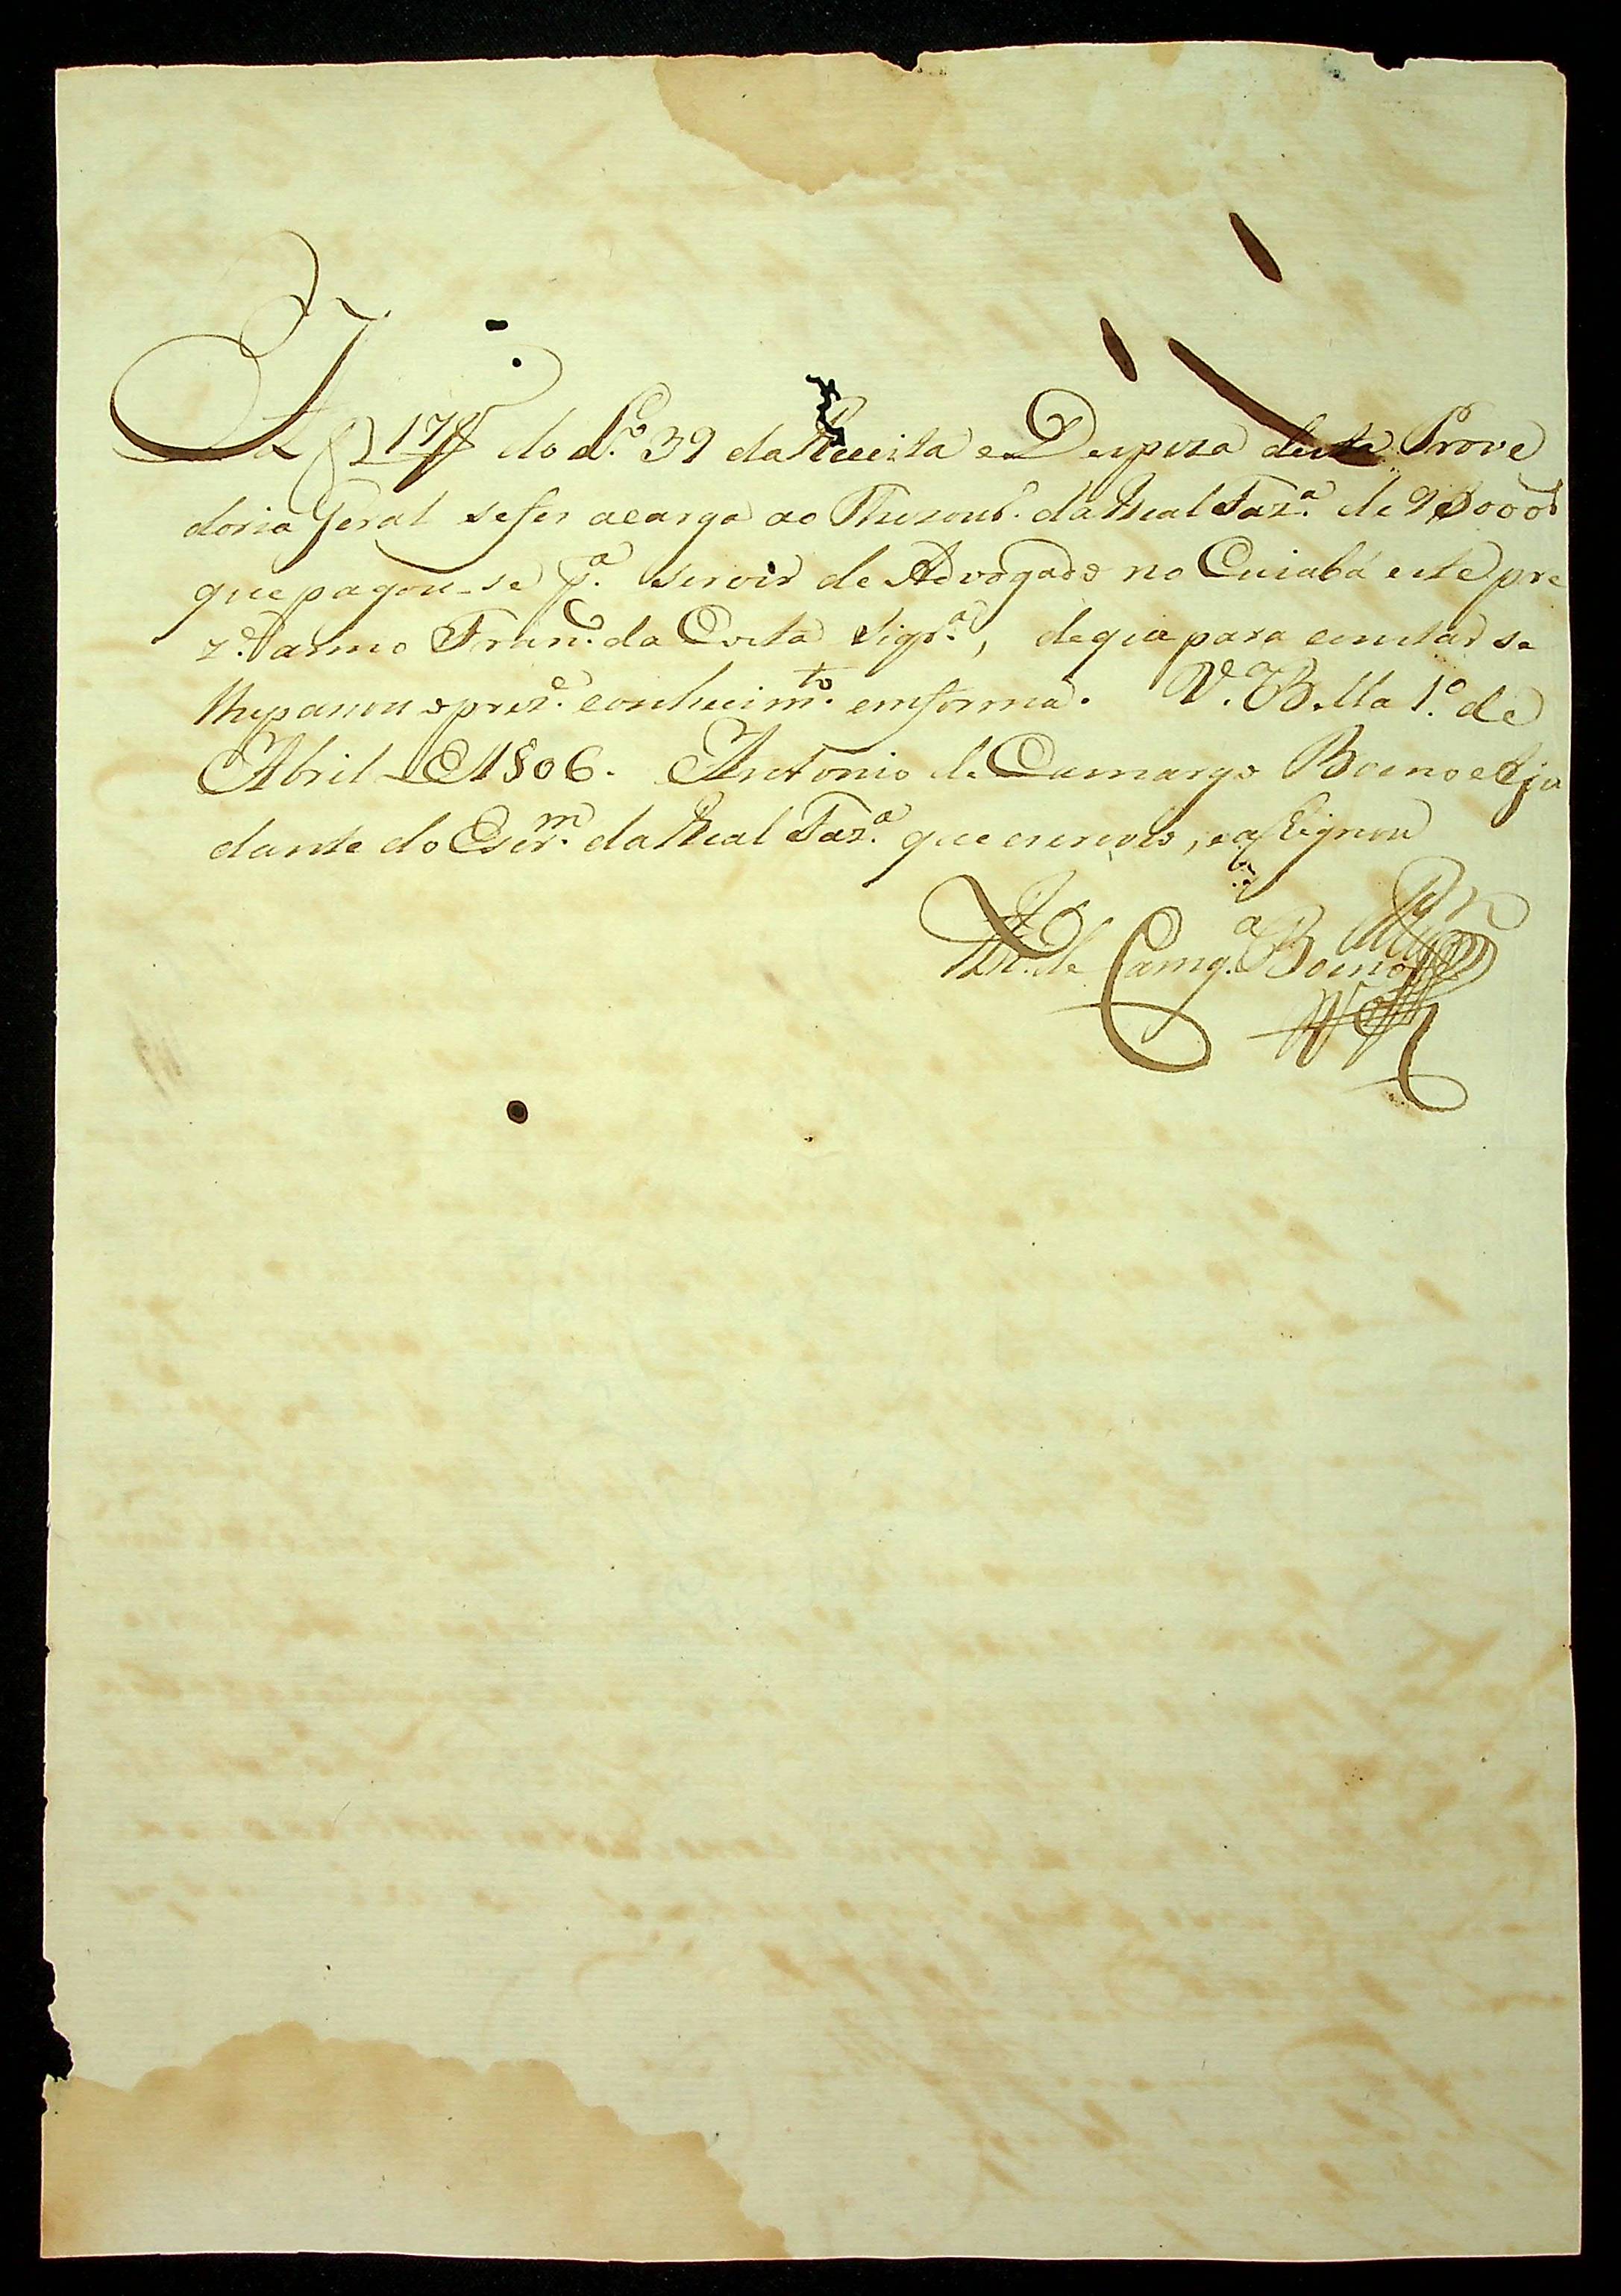 A f 17 do L.º 39 da Receita e Despeza desta Prove
doria Geral se fes a carga ao Thezour.º da Real Faz.ª de 9$000
que pagou-se p.ª servir de Advogado no Cuiabá este pre
z.e anno Fran.co da Costa Siqr.ª, de que para constar se
lhe passou o prez.e conhecim.to em forma. V.ª Bella 1.º de
Abril de 1806. Antonio de Camargo Boeno Aju
dante do Escr.m da Real Faz.ª que escrevo, e assignou
Ant.º de Camg.º Boeno